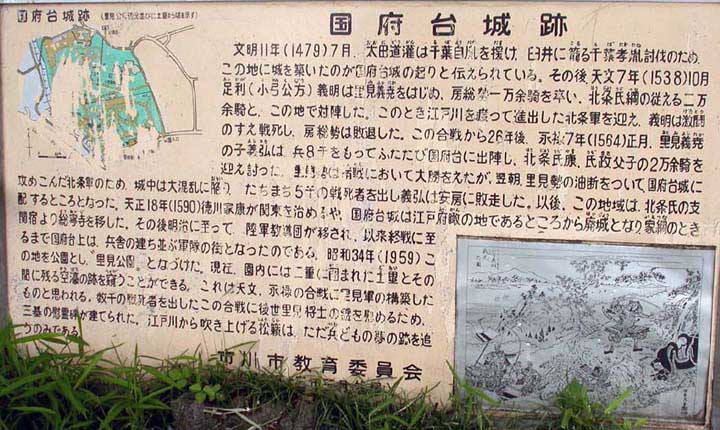 国府台城跡
国府台城跡
文明11年(1479)7月、太田道灌は千葉自胤を援け、臼井に籠る千葉孝胤討伐のため、
この地に城を築いたのが国府台城の起りと伝えられている。その後、天文7年(1538)10月
足利(小弓公方)義明は里見義堯をはじめ、房総勢一万余騎を率い、北条氏綱の従える二万
余騎と、この地で対陣した。このとき江戸川を渡って進出した北条軍を迎え、義明は激闘
のすえ戦死し、房総勢は敗退した。この合戦から26年後、永禄7年(1564)正月、里見義堯
の子義弘は、兵8千をもってふたたび国府台に出陣し、北条氏康、氏政父子の2万余騎を
迎え討った。里見軍は緒戦において大勝をえたが、翌朝、里見勢の油断をついて国府台城に
攻めこんだ北条軍のため、城中は大混乱に陥り、たちまち5千の戦死者を出し義弘は安房に敗走した。以後、この地域は、北条氏の支
配するところとなった。天正18年(1590)徳川家康が関東を治めるや、国府台城は江戸俯瞰の地であるところから廃城となり家綱のとき
関宿より総寧寺を移した。その後明治に至って、陸軍教導団が移され、以来終戦に至
るまで国府台上は、兵舎の建ち並ぶ軍隊の街となったのである。昭和34年(1959)こ
の地を公園とし"里見公園"となづけた。現在、園内には二重に囲まれた土塁とその
間に残る空濠の跡を窺うことができる。これは天文、永禄の合戦に里見軍の構築した
ものと思われる。数千の戦死者を出したこの合戦に後世里見将士の霊を慰めるため、
三基の慰霊碑が建てられた。江戸川から吹き上げる松籟は、ただ兵どもの夢の跡を追
うのみである。
市川市教育委員会